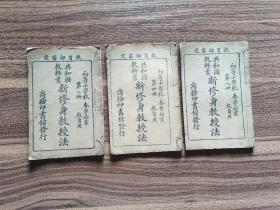 教育部審定
初等小學校 春季始業
教員用
第二冊
共和國
教科書
新修身教授法
商務印書館發行
教育部審定
初等小學校 春季始業
教員用
第四冊
共和國
教科書
新修身教授法
商務印書館發行
教育部審定
初等小學校 春季始業
教員用
共和國
教科書
新修身教授法
商務印書館發行